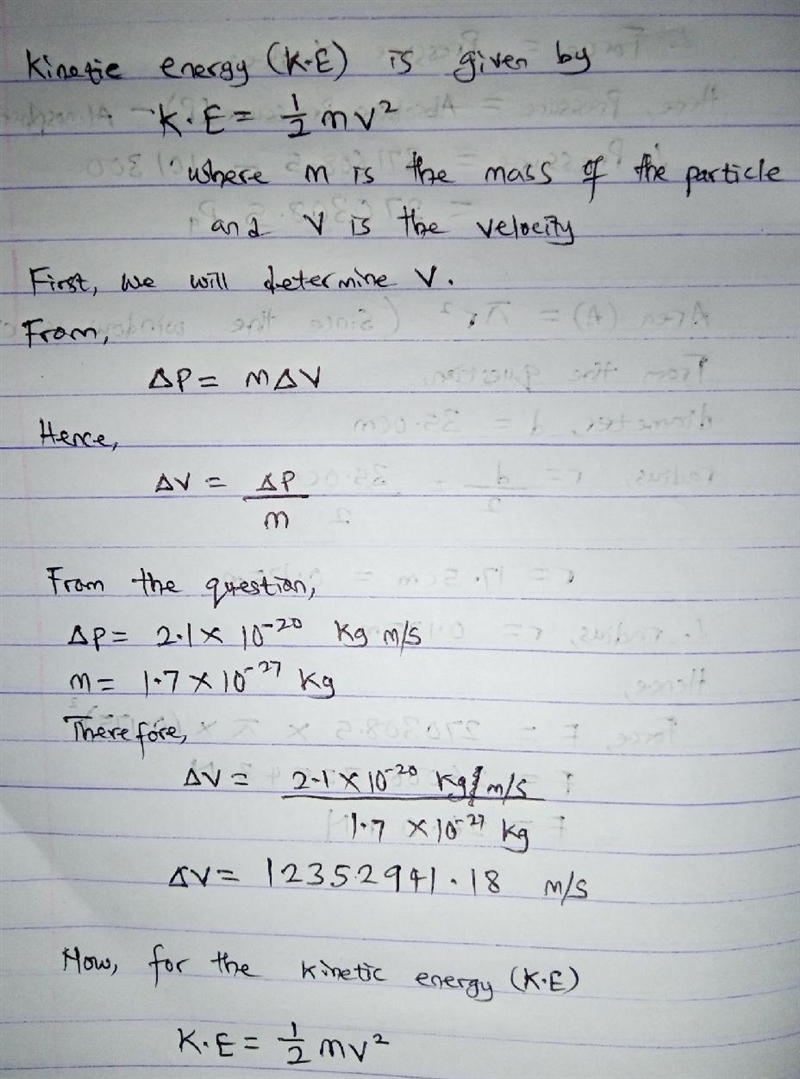 Kinetic energy (K.E) is given by
K.E = 1/2 mv²
where m is the mass of the particle
and V is the velocity
First, we will determine V.
From,
ΔP = mΔV
Hence,
ΔV = ΔP
m
From the question,
ΔP = 2.1 × 10⁻²⁰ Kg m/s
m = 1.7 × 10⁻²⁷ Kg
Therefore,
ΔV = 2.1 × 10⁻²⁰ Kg m/s
1.7 × 10⁻²⁷ Kg
ΔV = 12352941.18 m/s
Now, for the kinetic energy (K.E)
K.E = 1/2 mv²